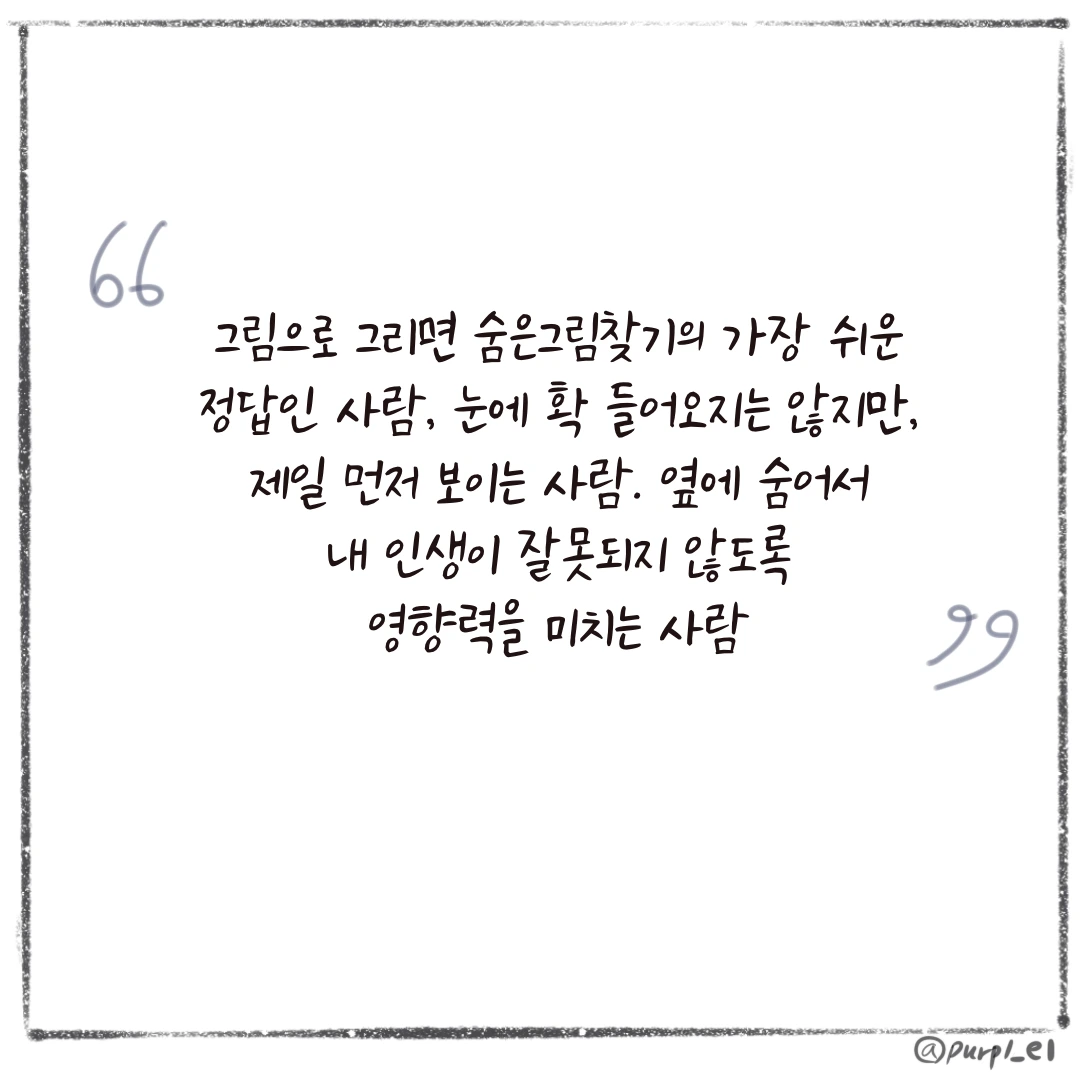 그림으로 그리면 숨은그림찾기의 가장 쉬운
정답인 사람, 눈에 확 들어오지는 않지만,
제일 먼저 보이는 사람. 옆에 숨어서
내 인생이 잘못되지 않도록
영향력을 미치는 사람
@purpl_el